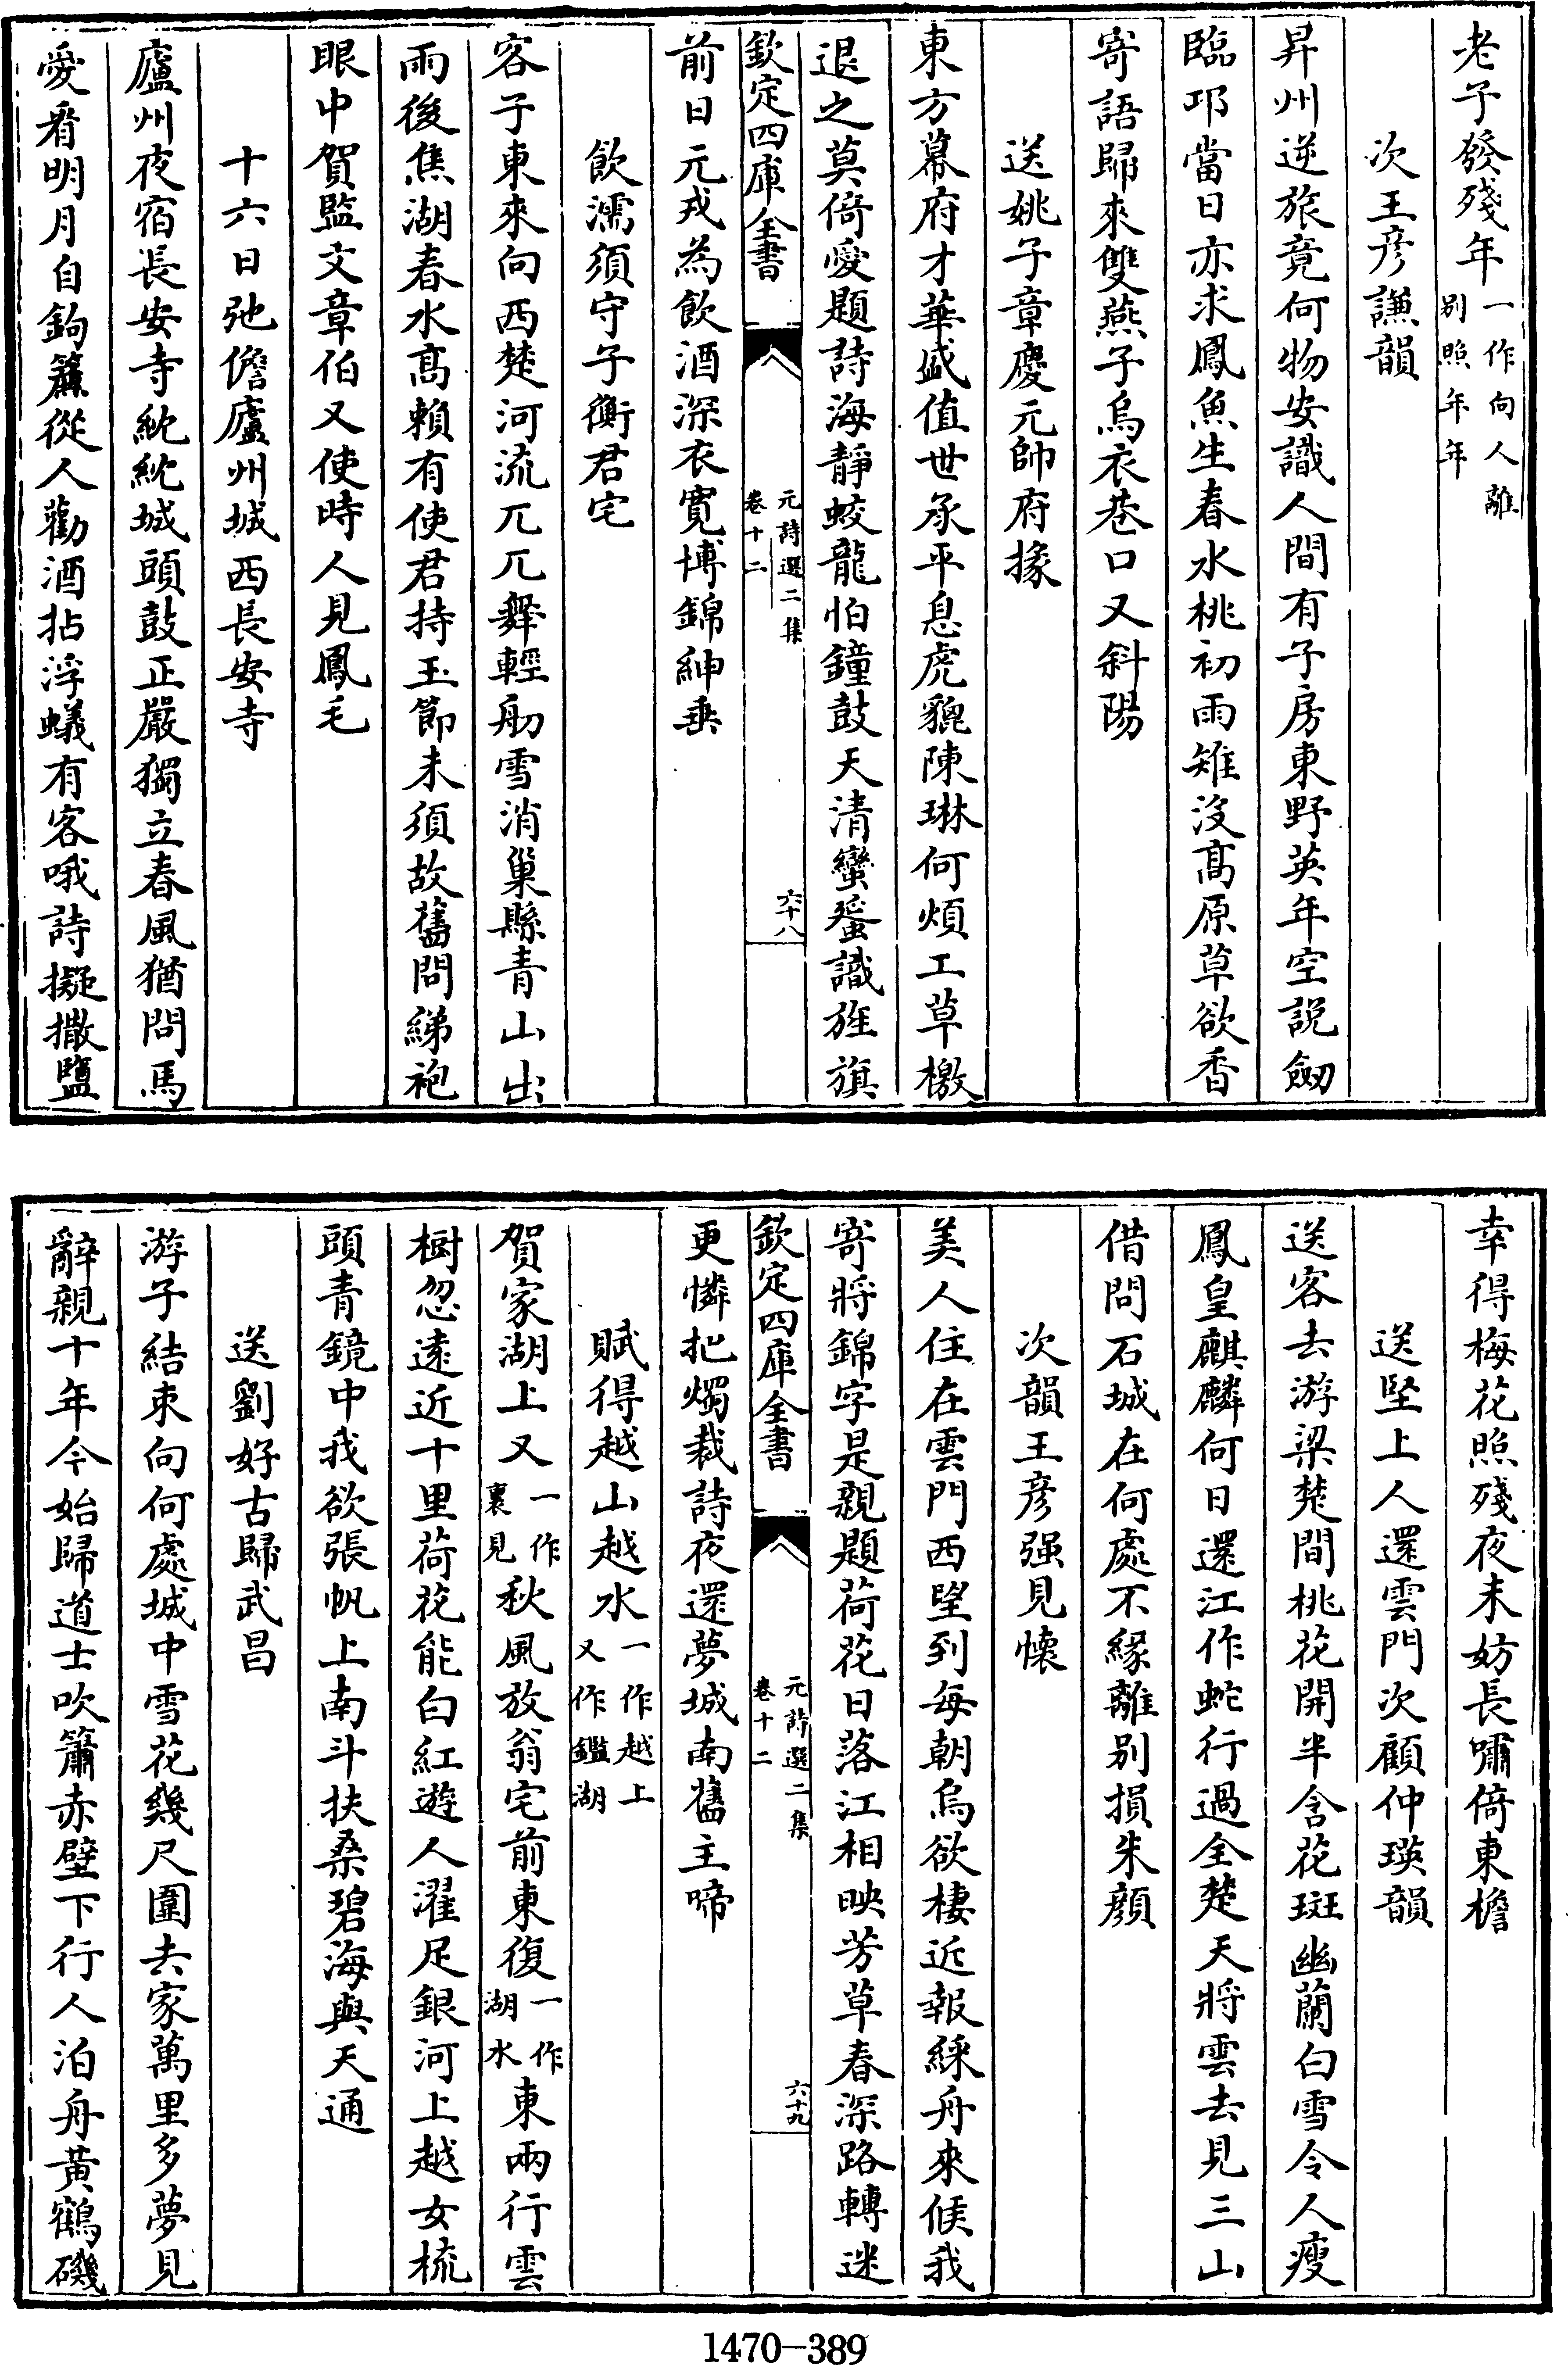 老子發殘年一作向人離
别照年年
次王彦謙韻
昇州逆旅竟何物安識人間有子房東野英年空説劒
臨邛當日亦求鳳魚生春水桃初雨雉沒髙原草欲香
寄語歸來雙燕子烏衣巷口又斜陽
送姚子章慶元帥府掾
東方幕府才華盛值世承平息虎貔陳琳何煩工草檄
退之莫倚愛題詩海靜蛟龍怕鐘鼓天清蠻蜑識旌旗
欽定四庫全書
元詩選二集
卷十二
六十八
前日元戎為飲酒深衣寛博錦紳垂
飲濡須守子衡君宅
客子東來向西楚河流兀兀舞輕舠雪消巢縣青山出
雨後焦湖春水髙賴有使君持玉節未須故舊問綈袍
眼中賀監文章伯又使時人見鳳毛
十六日弛儋廬州城西長安寺
廬州夜宿長安寺紞紞城頭鼓正嚴獨立春風猶問馬
愛看明月自鉤簾從人勸酒拈浮蟻有客哦詩擬撒鹽
幸得梅花照殘夜未妨長嘯倚東檐
送堅上人還雲門次顧仲瑛韻
送客去游梁楚間桃花開半含花斑幽蘭白雪令人瘦
鳳皇麒麟何日還江作蛇行過全楚天將雲去見三山
借問石城在何處不緣離别損朱顔
次韻王彦强見懷
美人住在雲門西望到每朝烏欲棲近報綵舟來候我
寄將錦字是親題荷花日落江相映芳草春深路轉迷
欽定四庫全書
元詩選二集
卷十二
六十九
更憐把燭裁詩夜還夢城南舊主啼
賦得越山越水一作越上
又作鑑湖
賀家湖上又一作
裏見秋風放翁宅前東復一作
湖水東兩行雲
樹忽遠近十里荷花能白紅遊人濯足銀河上越女梳
頭青鏡中我欲張帆上南斗扶桑碧海與天通
送劉好古歸武昌
游子結束向何處城中雪花幾尺圍去家萬里多夢見
辭親十年今始歸道士吹簫赤壁下行人泊舟黃鶴磯
1470-389